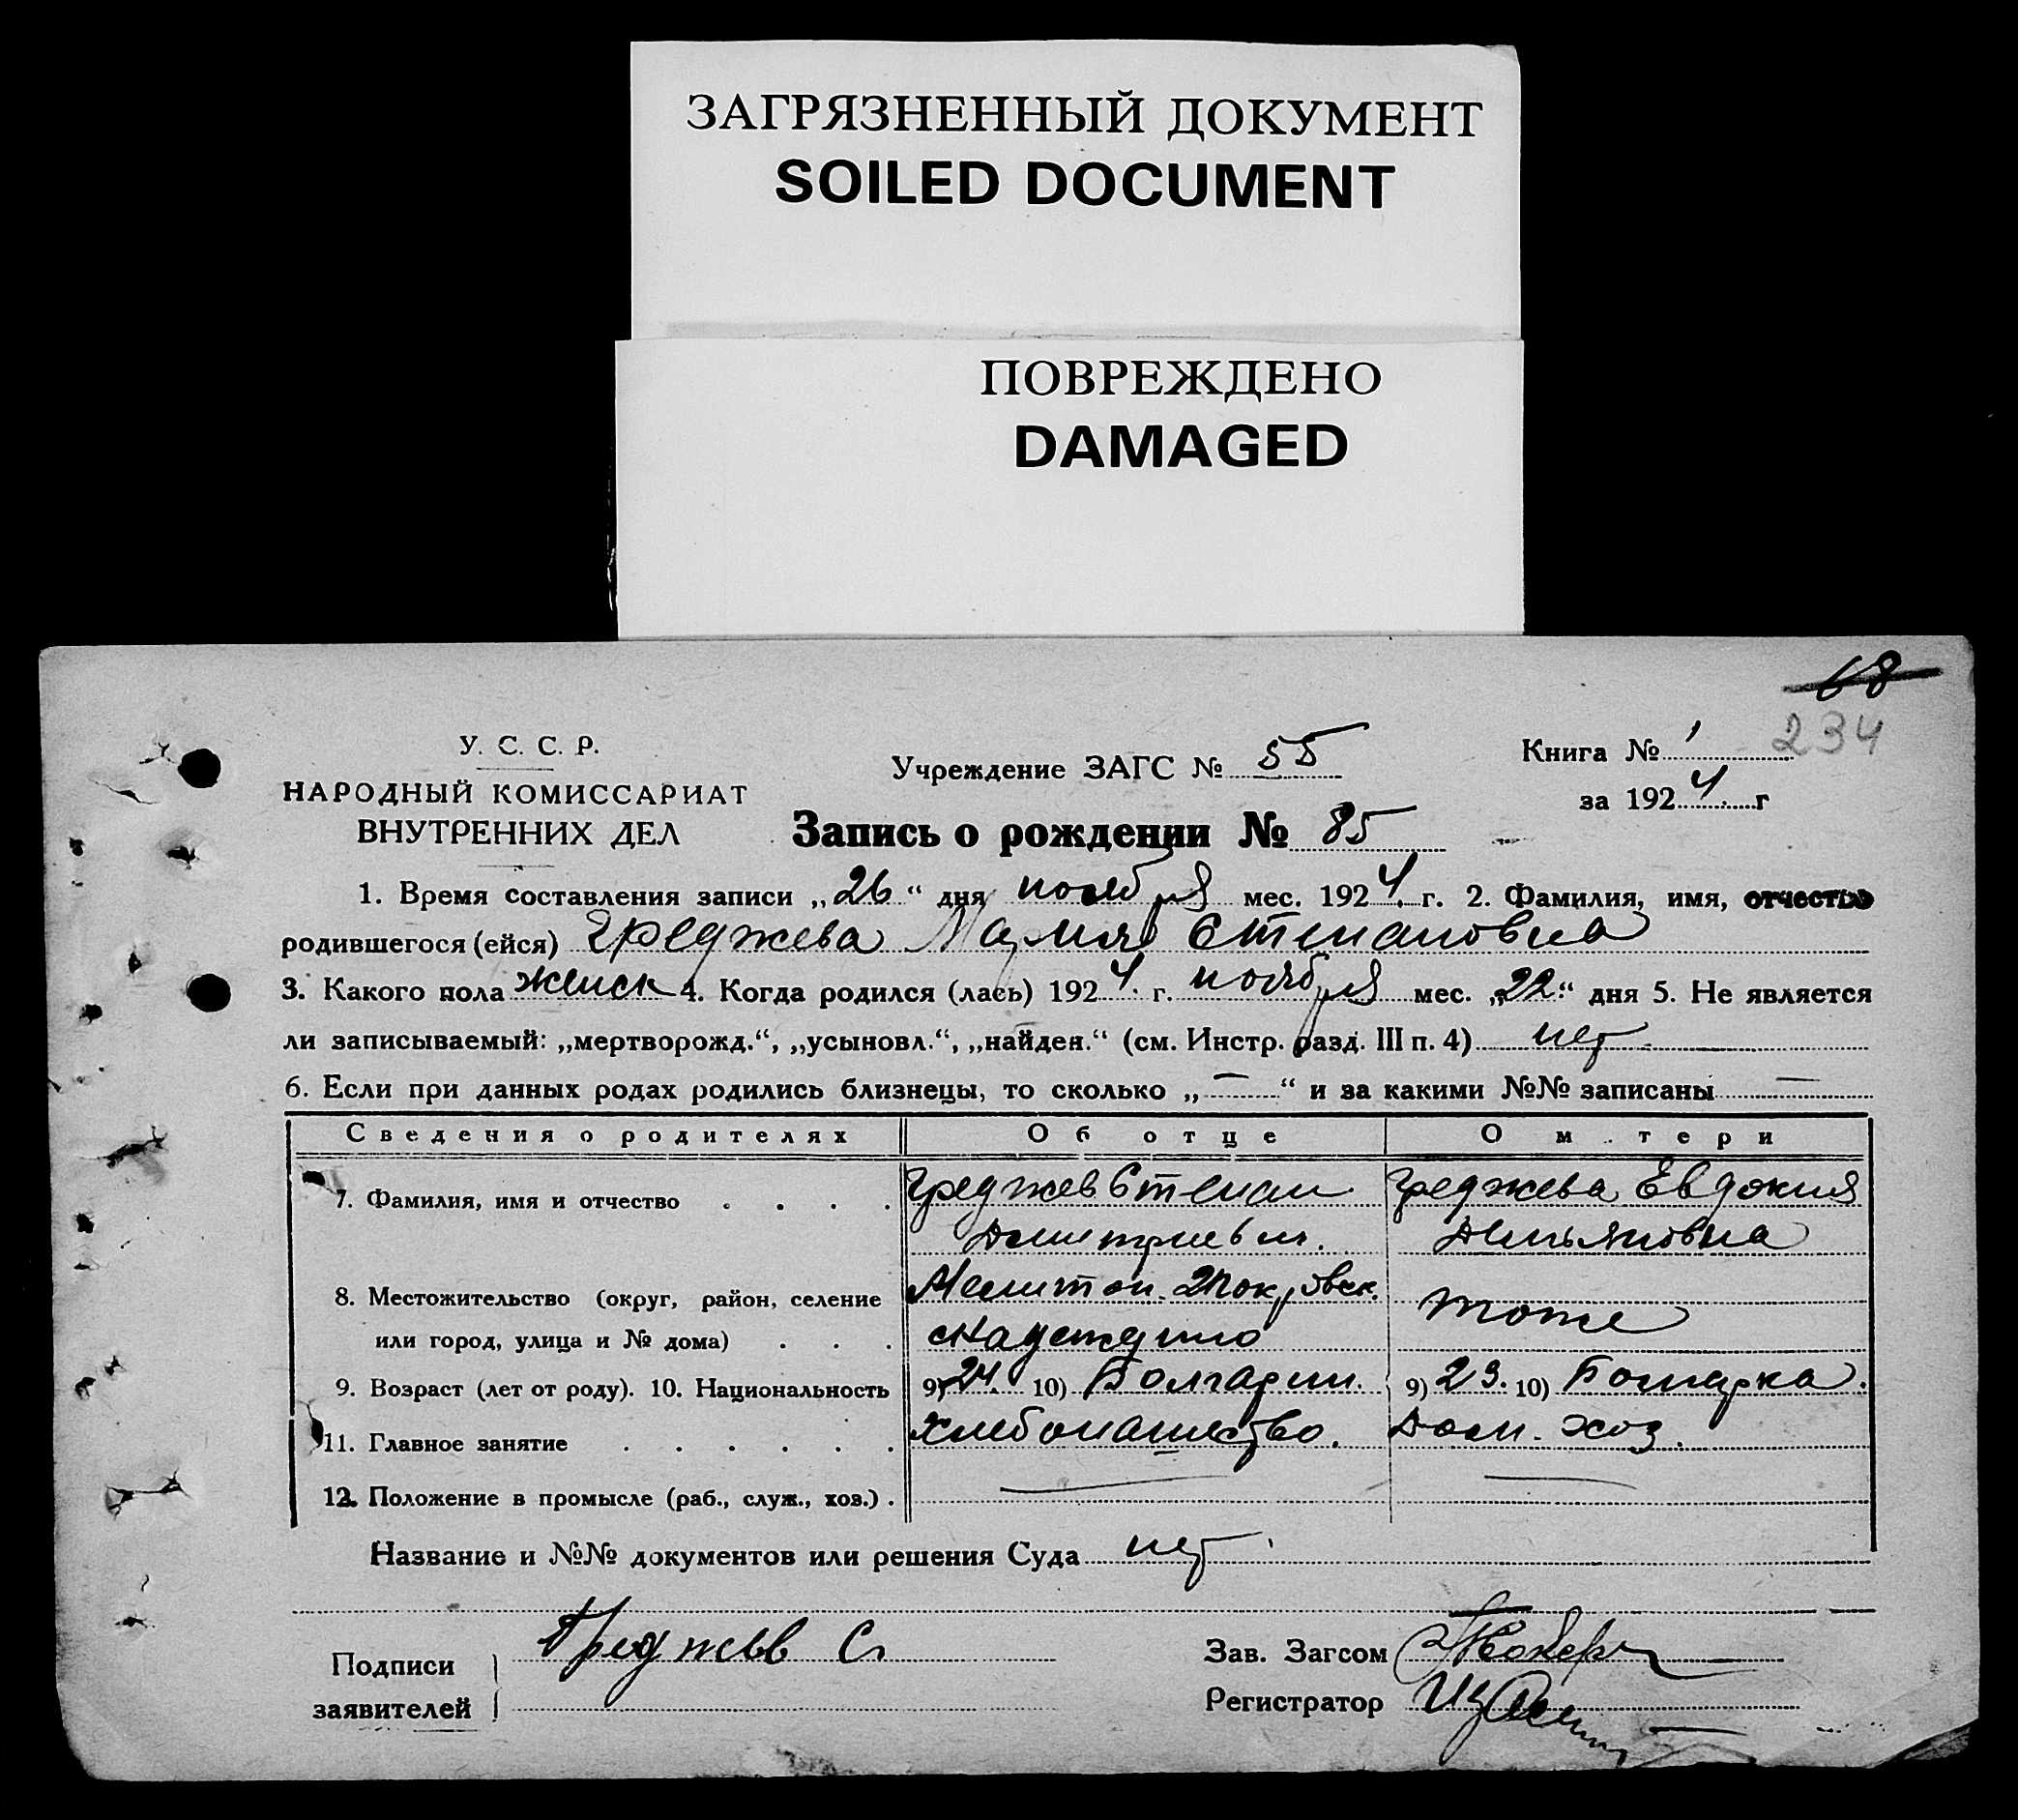 ЗАГРЯЗНЕННЫЙ ДОКУМЕНТ
SOILED DOCUMENT
ПОВРЕЖДЕНО
DAMAGED
68
234
У. С. С. Р.
НАРОДНЫЙ КОМИССАРИАТ
ВНУТРЕННИХ ДЕЛ
Учреждение ЗАГС № 55
Книга № 1
за 1924 г
Запись о рождении № 85
1. Время составления записи „26“ дня ноября мес. 1924 г. 2. Фамилия, имя, отчество
родившегося (ейся) Греджева Мария Степановна
3. Какого пола женск 4. Когда родился (лась) 1924 г. ноября мес. „22“ дня 5. Не является
ли записываемый: „мертворожд.“, „усыновл.“, „найден.“ (см. Инстр. разд. III п. 4) нет
6. Если при данных родах родились близнецы, то сколько „—“ и за какими №№ записаны —
Сведения о родителях Об отце О м.тери
7. Фамилия, имя и отчество . . . . Греджев Степан Греджева Евдокия
Дмитриевич. Демьяновна
8. Местожительство (округ, район, селение Мелитоп. Покровск. тоже
или город, улица и № дома) . . . Надеждино
9. Возраст (лет от роду). 10. Национальность 9) 24. 10) Болгарин. 9) 23. 10) Болгарка.
11. Главное занятие . . . . . . Хлебопашество. Дом. хоз.
12. Положение в промысле (раб., служ., хоз.) . — —
Название и №№ документов или решения Суда нет
Подписи заявителей Греджев С.
Зав. Загсом
Регистратор